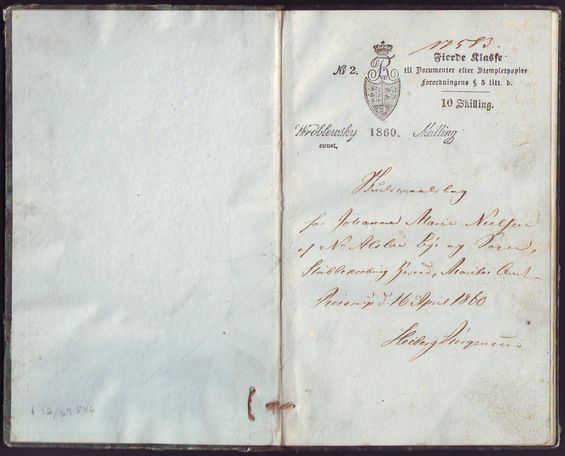 No 2.
17583.
Fierde Klasse
til Documenter efter Stempletpapirs
Forordningens § 5 litt. b.
10 Skilling.
Wroblewsky 1860. Malling
const.
Skudsmaalsbog
for Johanne Marie Nielsen
af Nr Alslev By og Sogn,
Stubbekøbing Herred, Maribo Amt
d 16 April 1860
Heiberg Jürgensen